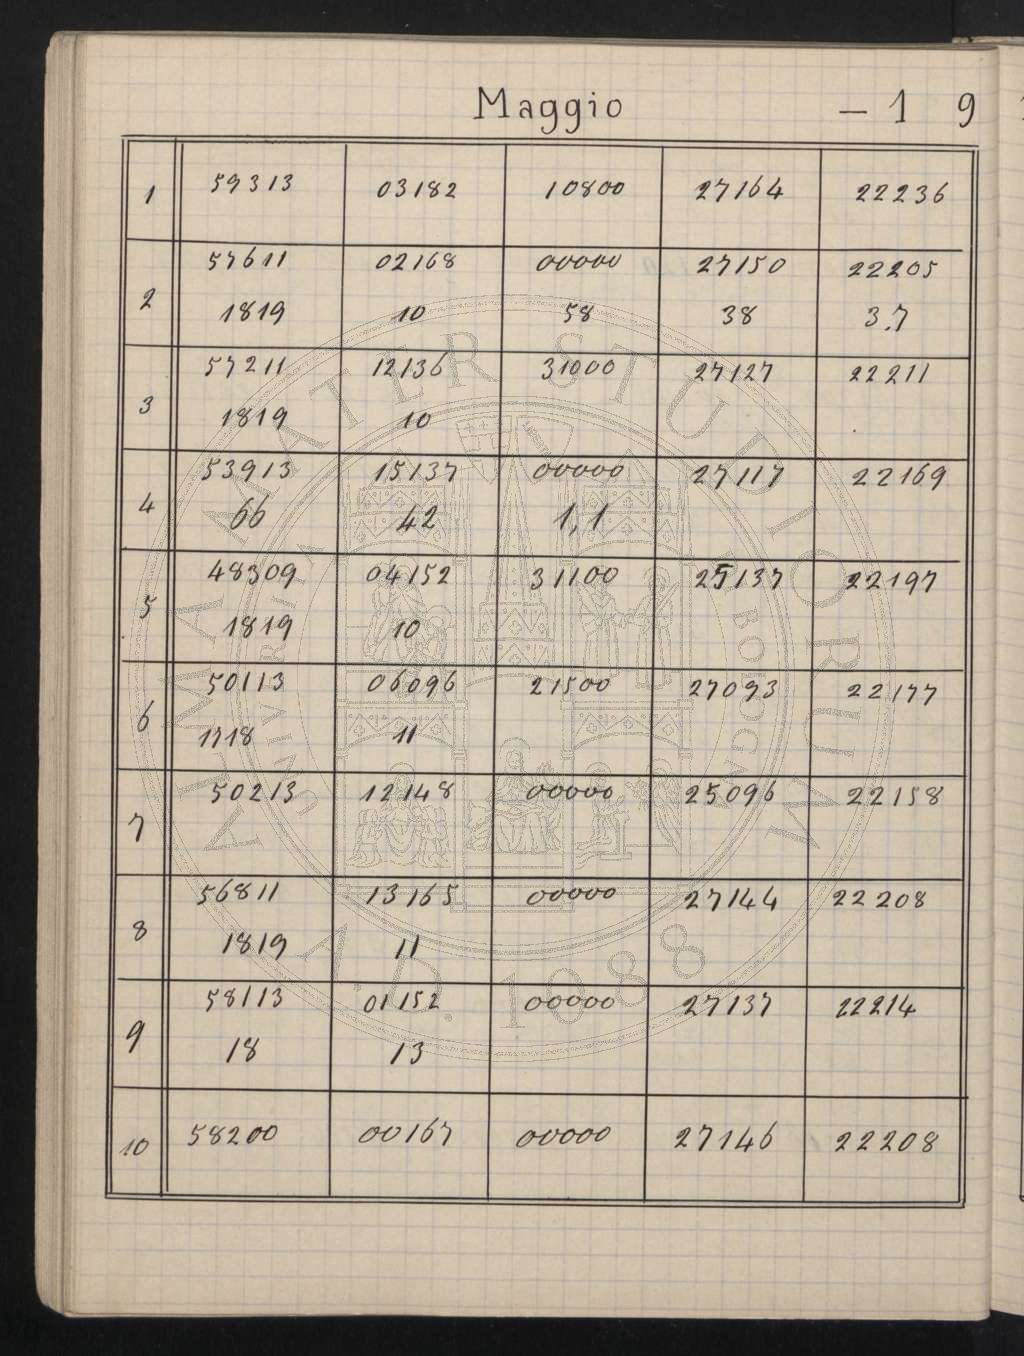 Maggio — 1 9
1 59313 03182 10800 27164 22236
57611 02168 00000 27150 22205
2 1819 10 58 38 3.7
57211 12136 31000 27127 22211
3 1819 10
53913 15137 00000 27117 22169
4 66 42 1,1
48309 04152 31100 25137 22197
5 1819 10
50113 06096 21500 27093 22177
6 1718 11
50213 12148 00000 25096 22158
7
56811 13165 00000 27144 22208
8 1819 11
58113 01152 00000 27137 22214
9 18 13
10 58200 00167 00000 27146 22208
ALMA MATER STUDIORUM
A.D. 1088